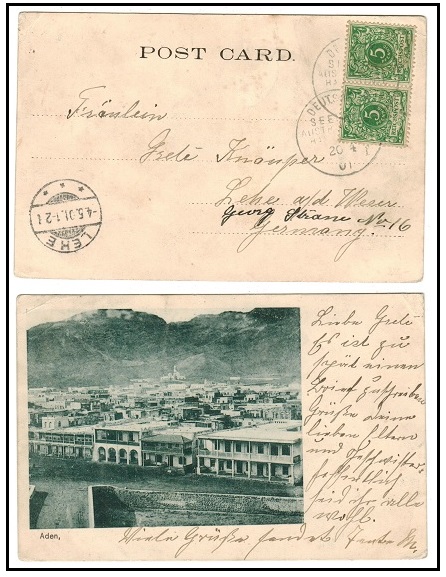 POST CARD.
DEUTSCHE
SEE
20 4
01
5
5
Fräulein
Grete Knäuper
Lehe a/d Weser
Georg Strasse No 16
Germany.
4.5.01.1-2 N
LEHE
Liebe Grete
Es ist zu
spät einen
Brief zu schreiben
Grüße deine
lieben Eltern
und Geschwister
hoffentlich
seid ihr alle
wohl.
Aden,
Viele Grüße sendet Tante M.